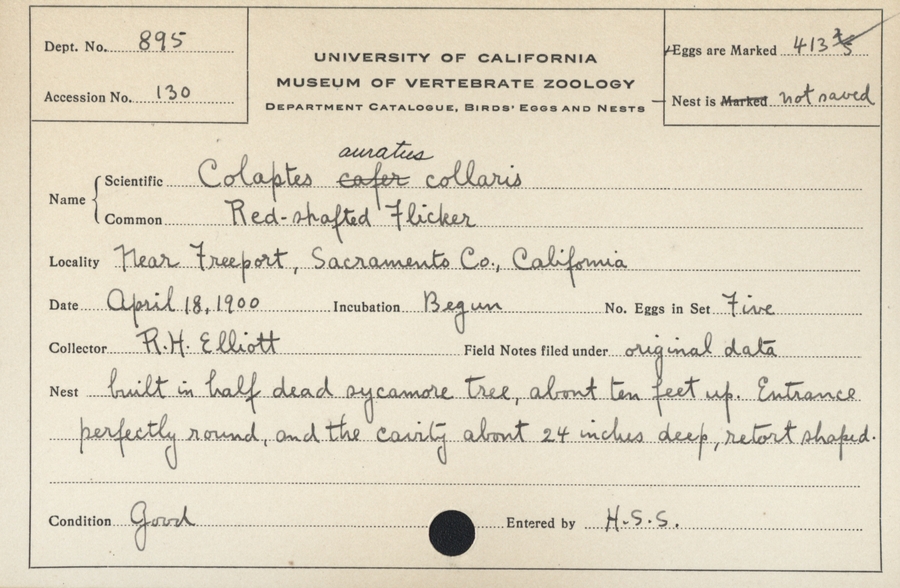 Dept. No. 895
Accession No. 130
UNIVERSITY OF CALIFORNIA
MUSEUM OF VERTEBRATE ZOOLOGY
DEPARTMENT CATALOGUE, BIRDS' EGGS AND NESTS
Eggs are Marked 413 5
Nest is Marked not saved
auratus
Name Scientific Colaptes cafer collaris
Common Red-shafted Flicker
Locality Near Freeport, Sacramento Co., California
Date April 18, 1900 Incubation Begun No. Eggs in Set Five
Collector R.H. Elliott Field Notes filed under original data
Nest built in half dead sycamore tree, about ten feet up. Entrance
perfectly round, and the cavity about 24 inches deep, retort shaped.
Condition Good Entered by H.S.S.